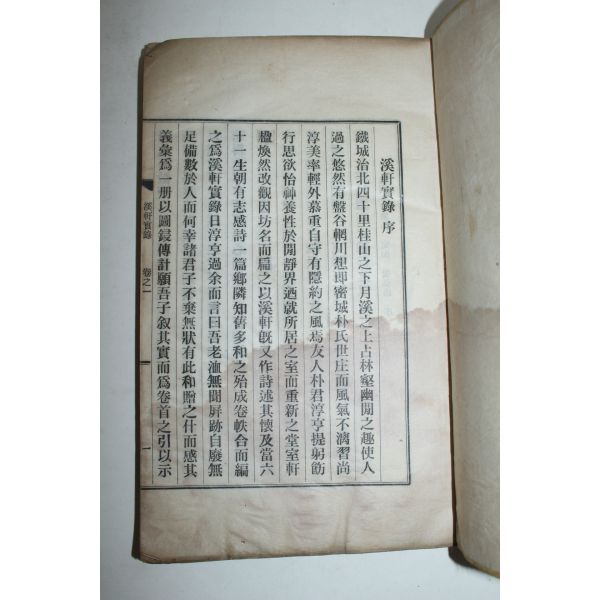 溪軒實錄序
鐵城治北四十里桂山之下月溪之上占林壑幽閒之趣使人
過之悠然有盤谷輞川想即密城朴氏世庄而風氣不漓習尚
淳美率輕外慕重自守有隱約之風焉友人朴君淳亨提躬飭
行思欲怡神養性於閒靜界迺就所居之室而重新之堂室軒
楹煥然改觀因坊名而扁之以溪軒旣又作詩述其懷及當六
十一生朝有志感詩一篇鄕隣知舊多和之殆成卷帙合而編
之爲溪軒實錄日淳亨過余而言曰吾老洫無聞屛跡自廢無
足備數於人而何幸諸君子不棄無狀有此和贈之什而感其
義彙爲一册以圖鋟傳計願吾子敍其實而爲卷首之引以示
溪軒實錄 卷之一 一